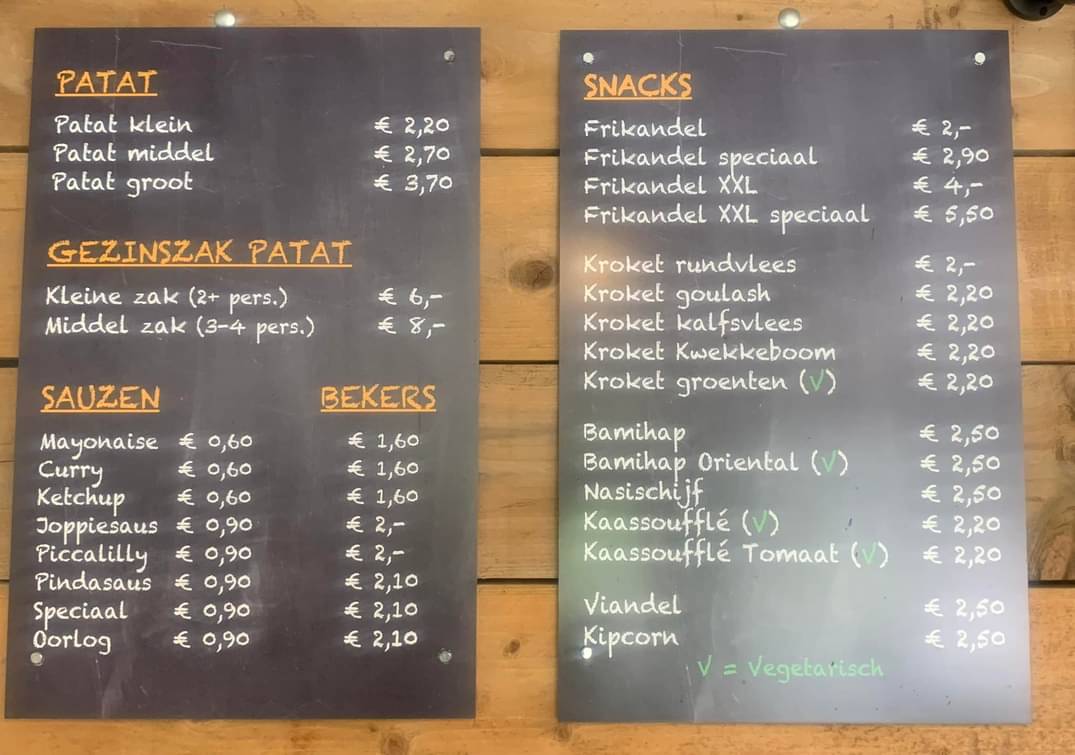 PATAT
Patat klein € 2,20
Patat middel € 2,70
Patat groot € 3,70
GEZINSZAK PATAT
Kleine zak (2+ pers.) € 6,-
Middel zak (3-4 pers.) € 8,-
SAUZEN BEKERS
Mayonaise € 0,60 € 1,60
Curry € 0,60 € 1,60
Ketchup € 0,60 € 1,60
Joppiesaus € 0,90 € 2,-
Piccalilly € 0,90 € 2,-
Pindasaus € 0,90 € 2,10
Speciaal € 0,90 € 2,10
Oorlog € 0,90 € 2,10
SNACKS
Frikandel € 2,-
Frikandel speciaal € 2,90
Frikandel XXL € 4,-
Frikandel XXL speciaal € 5,50
Kroket rundvlees € 2,-
Kroket goulash € 2,20
Kroket kalfsvlees € 2,20
Kroket Kwekkeboom € 2,20
Kroket groenten (V) € 2,20
Bamihap € 2,50
Bamihap Oriental (V) € 2,50
Nasischijf € 2,50
Kaassoufflé (V) € 2,20
Kaassoufflé Tomaat (V) € 2,20
Viandel € 2,50
Kipcorn € 2,50
V = Vegetarisch